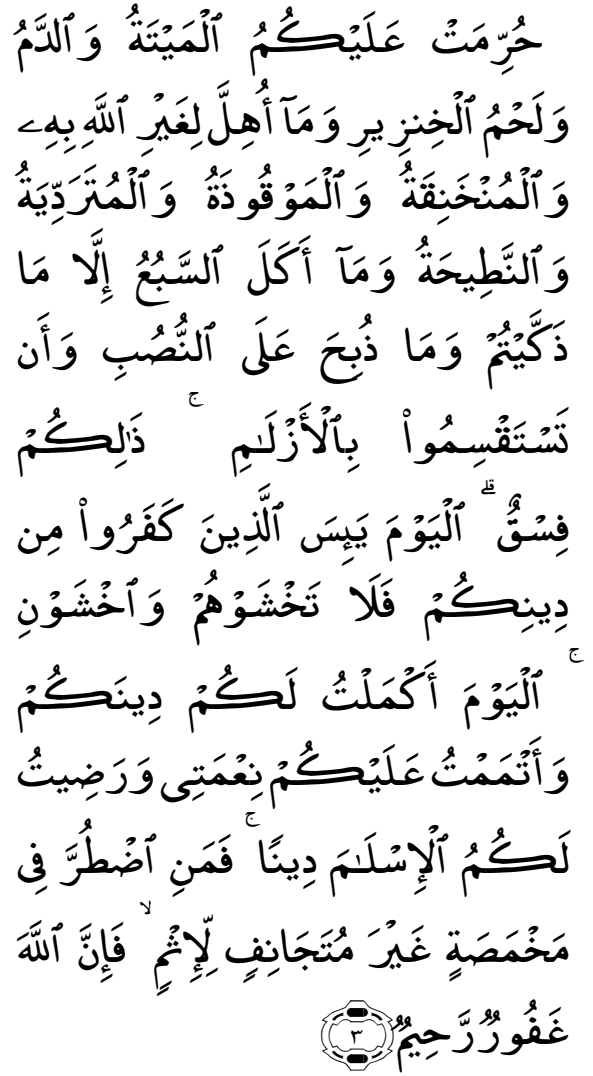 حُرِّمَتْ عَلَيْكُمُ ٱلْمَيْتَةُ وَٱلدَّمُ
وَلَحْمُ ٱلْخِنزِيرِ وَمَآ أُهِلَّ لِغَيْرِ ٱللَّهِ بِهِۦ
وَٱلْمُنْخَنِقَةُ وَٱلْمَوْقُوذَةُ وَٱلْمُتَرَدِّيَةُ
وَٱلنَّطِيحَةُ وَمَآ أَكَلَ ٱلسَّبُعُ إِلَّا مَا
ذَكَّيْتُمْ وَمَا ذُبِحَ عَلَى ٱلنُّصُبِ وَأَن
تَسْتَقْسِمُوا۟ بِٱلْأَزْلَـٰمِ ۚ ذَٰلِكُمْ
فِسْقٌ ۗ ٱلْيَوْمَ يَئِسَ ٱلَّذِينَ كَفَرُوا۟ مِن
دِينِكُمْ فَلَا تَخْشَوْهُمْ وَٱخْشَوْنِ
ۚ ٱلْيَوْمَ أَكْمَلْتُ لَكُمْ دِينَكُمْ
وَأَتْمَمْتُ عَلَيْكُمْ نِعْمَتِى وَرَضِيتُ
لَكُمُ ٱلْإِسْلَـٰمَ دِينًا ۚ فَمَنِ ٱضْطُرَّ فِى
مَخْمَصَةٍ غَيْرَ مُتَجَانِفٍ لِّإِثْمٍ ۙ فَإِنَّ ٱللَّهَ
غَفُورٌ رَّحِيمٌ ٣